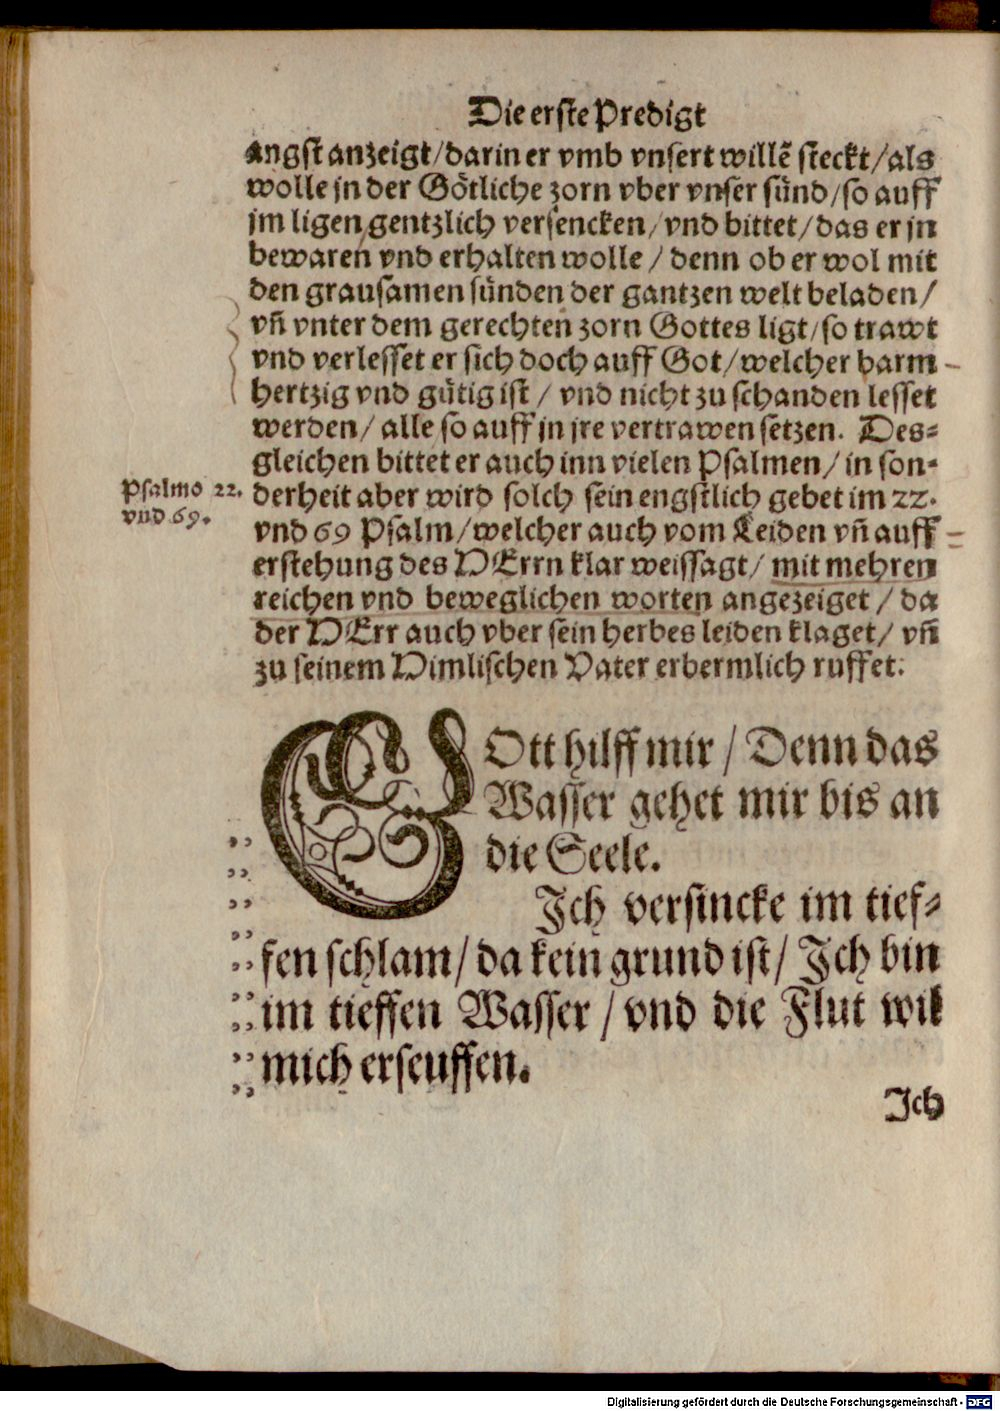 Die erste Predigt
angst anzeigt/darin er vmb vnsert willē steckt/als
wolle jn der Götliche zorn vber vnser sünd/so auff
jm ligen gentzlich versencken/vnd bittet/das er jn
bewaren vnd erhalten wolle/denn ob er wol mit
den grausamen sünden der gantzen welt beladen/
vñ vnter dem gerechten zorn Gottes ligt/so trawt
vnd verlesset er sich doch auff Got/welcher barm
hertzig vnd gütig ist/vnd nicht zu schanden lesset
werden/alle so auff jn jre vertrawen setzen. Des-
gleichen bittet er auch inn vielen Psalmen/in son-
Psalmo 22. vnd 69.
derheit aber wird solch sein engstlich gebet im 22.
vnd 69 Psalm/welcher auch vom Leiden vñ auff
erstehung des HErrn klar weissagt/mit mehren
reichen vnd beweglichen worten angezeiget/da
der HErr auch vber sein herbes leiden klaget/vñ
zu seinem Himlischen Vater erbermlich ruffet:
GOtt hilff mir/Denn das
Wasser gehet mir bis an
die Seele.
Jch versincke im tief-
fen schlam/da kein grund ist/Jch bin
im tieffen Wasser/vnd die Flut wil
mich erseuffen.
Jch
Digitalisierung gefördert durch die Deutsche Forschungsgemeinschaft - DFG